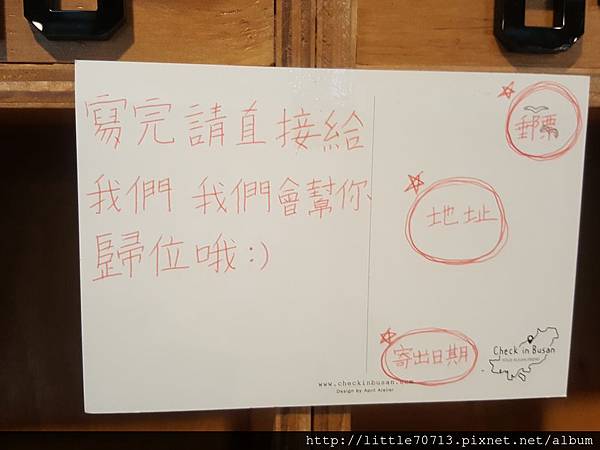 寫完請直接給
我們 我們會幫你
歸位哦:)
郵票
地址
寄出日期
Check in Busan
www.checkinbusan.com
Design by April Atelier
http://little70713.pixnet.net/album